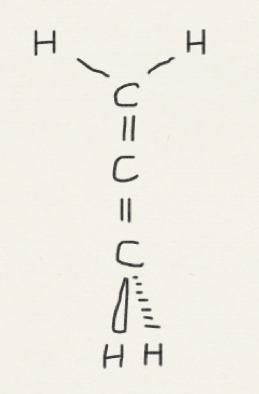 H H
C
C
C
H H